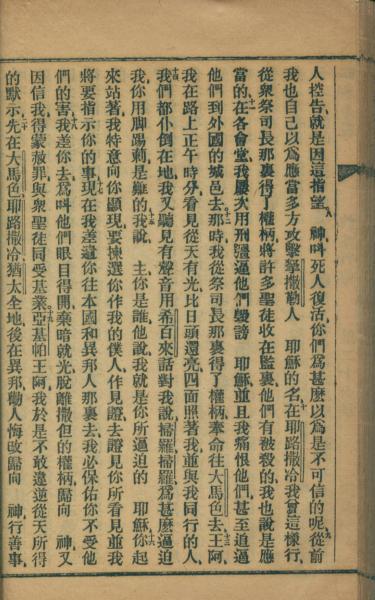 人控告就是因這指望 八 神叫死人復活你們爲甚麼以爲是不可信的呢 九 從前
我也自己以爲應當多方攻擊拏撒勒人 耶穌的名 十 在耶路撒冷我曾這樣行
從衆祭司長那裏得了權柄將許多聖徒收在監裏他們有被殺的我也說是應
當的 十一 在各會堂我屢次用刑強逼他們毀謗 耶穌並且我痛恨他們甚至追逼
他們到外國的城邑去 十二 那時我從祭司長那裏得了權柄奉命往大馬色去 十三 王阿
我在路上正午時分看見從天有光比日頭還亮四面照著我並與我同行的人
十四 我們都仆倒在地我又聽見有聲音用希百來話對我說掃羅掃羅爲甚麼逼迫
我你用脚踢刺是難的 十五 我說 主你是誰他說我就是你所逼迫的 耶穌 十六 你起
來站著我特意向你顯現要揀選你作我的僕人作見證去證見你所看見並我
將要指示你的事 十七 現在我差遣你往本國和異邦人那裏去我必保佑你不受他
們的害 十八 我差你去爲叫他們眼目得開棄暗就光脫離撒但的權柄歸向 神又
因信我得蒙赦罪與衆聖徒同受基業 十九 亞基帕王阿我於是不敢違逆從天所得
的默示 二十 先在大馬色耶路撒冷猶太全地後在異邦勸人悔改歸向 神行善事